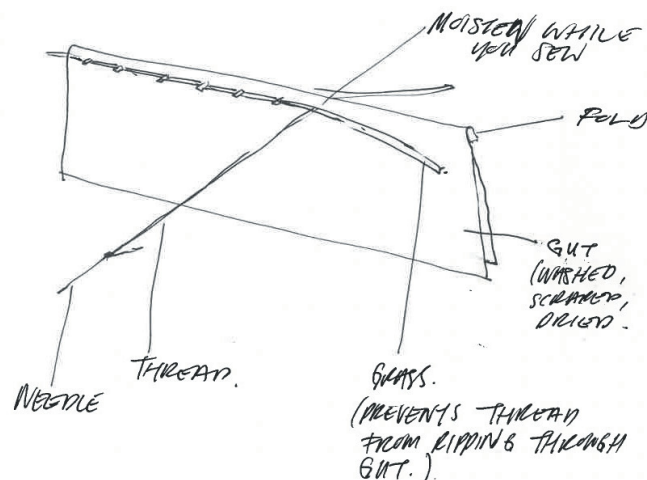 MOISTEN WHILE
YOU SEW
FOLD
GUT
(WASHED,
SCRAPED,
DRIED.
THREAD.
NEEDLE
GRASS.
(PREVENTS THREAD
FROM RIPPING THROUGH
GUT.)